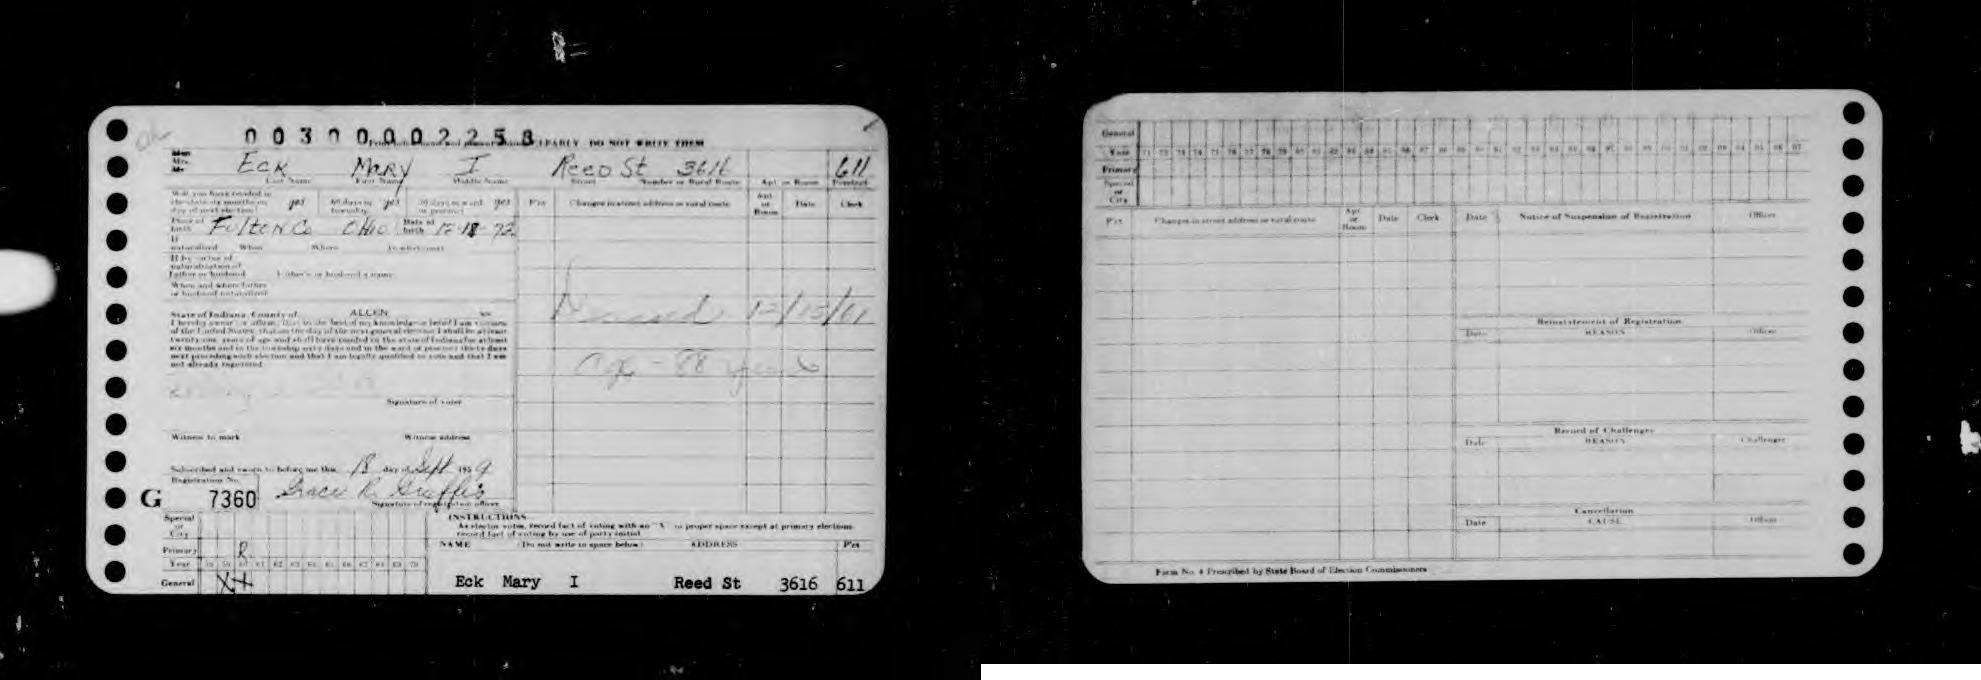 0 0 3 0 0 0 0 2 2 5 8
CLEARLY DO NOT WRITE THEM
Mrs.
Mr
Eck Mary I Reed St 3616 611
Last Name First Name Middle Name Street Number or Rural Route Apt or Room Precinct
Will you have resided in
the state six months on
day of next election? yes 60 days in township yes 30 days in ward or precinct yes
Pct Changes in street address or rural route Apt or Room Date Clerk
Place of birth Fulton Co Ohio Date of birth 12-18-72
If naturalized When Where
If by virtue of
naturalization of
father or husband Father's or husband's name
When and where father
or husband naturalized
State of Indiana, County of ALLEN ss
I hereby swear or affirm, that to the best of my knowledge or belief I am a citizen
of the United States, that on the day of the next general election I shall be at least
twenty-one years of age and shall have resided in the state of Indiana for at least
six months and in the township sixty days and in the ward or precinct thirty days
next preceding such election and that I am legally qualified to vote and that I am
not already registered
Deceased 12/15/61
age - 88 years
Signature of voter
Witness to mark Witness address
Subscribed and sworn to before me this 18 day of Sept 1959
Registration No.
G 7360 Grace R. Griffis
Signature of registration officer
Special
or
City
Primary R
Year 58 59 60 61 62 63 64 65 66 67 68 69 70
General X +
INSTRUCTIONS
As elector votes, record fact of voting with an "X" in proper space except at primary elections
record fact of voting by use of party initial
NAME (Do not write in space below) ADDRESS Pct
Eck Mary I Reed St 3616 611
General
Year
Primary
Special
or
City
Pct Changes in street address or rural route Apt or Room Date Clerk Date Notice of Suspension of Registration Officer
Reinstatement of Registration
Date REASON Officer
Record of Challenges
Date REASON Challenger
Cancellation
Date CAUSE Officer
Form No. 4 Prescribed by State Board of Election Commissioners